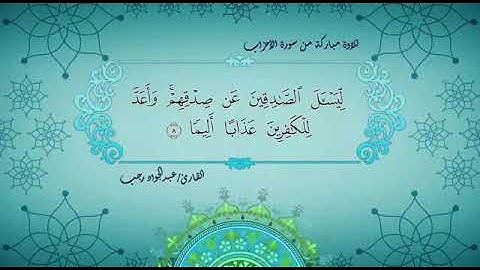 تلاوة مباركة من سورة الأحزاب
لِّيَسْـَٔلَ ٱلصَّـٰدِقِينَ عَن صِدْقِهِمْ ۚ وَأَعَدَّ
لِلْكَـٰفِرِينَ عَذَابًا أَلِيمًا ٨
القارئ/عبدالجواد رجب